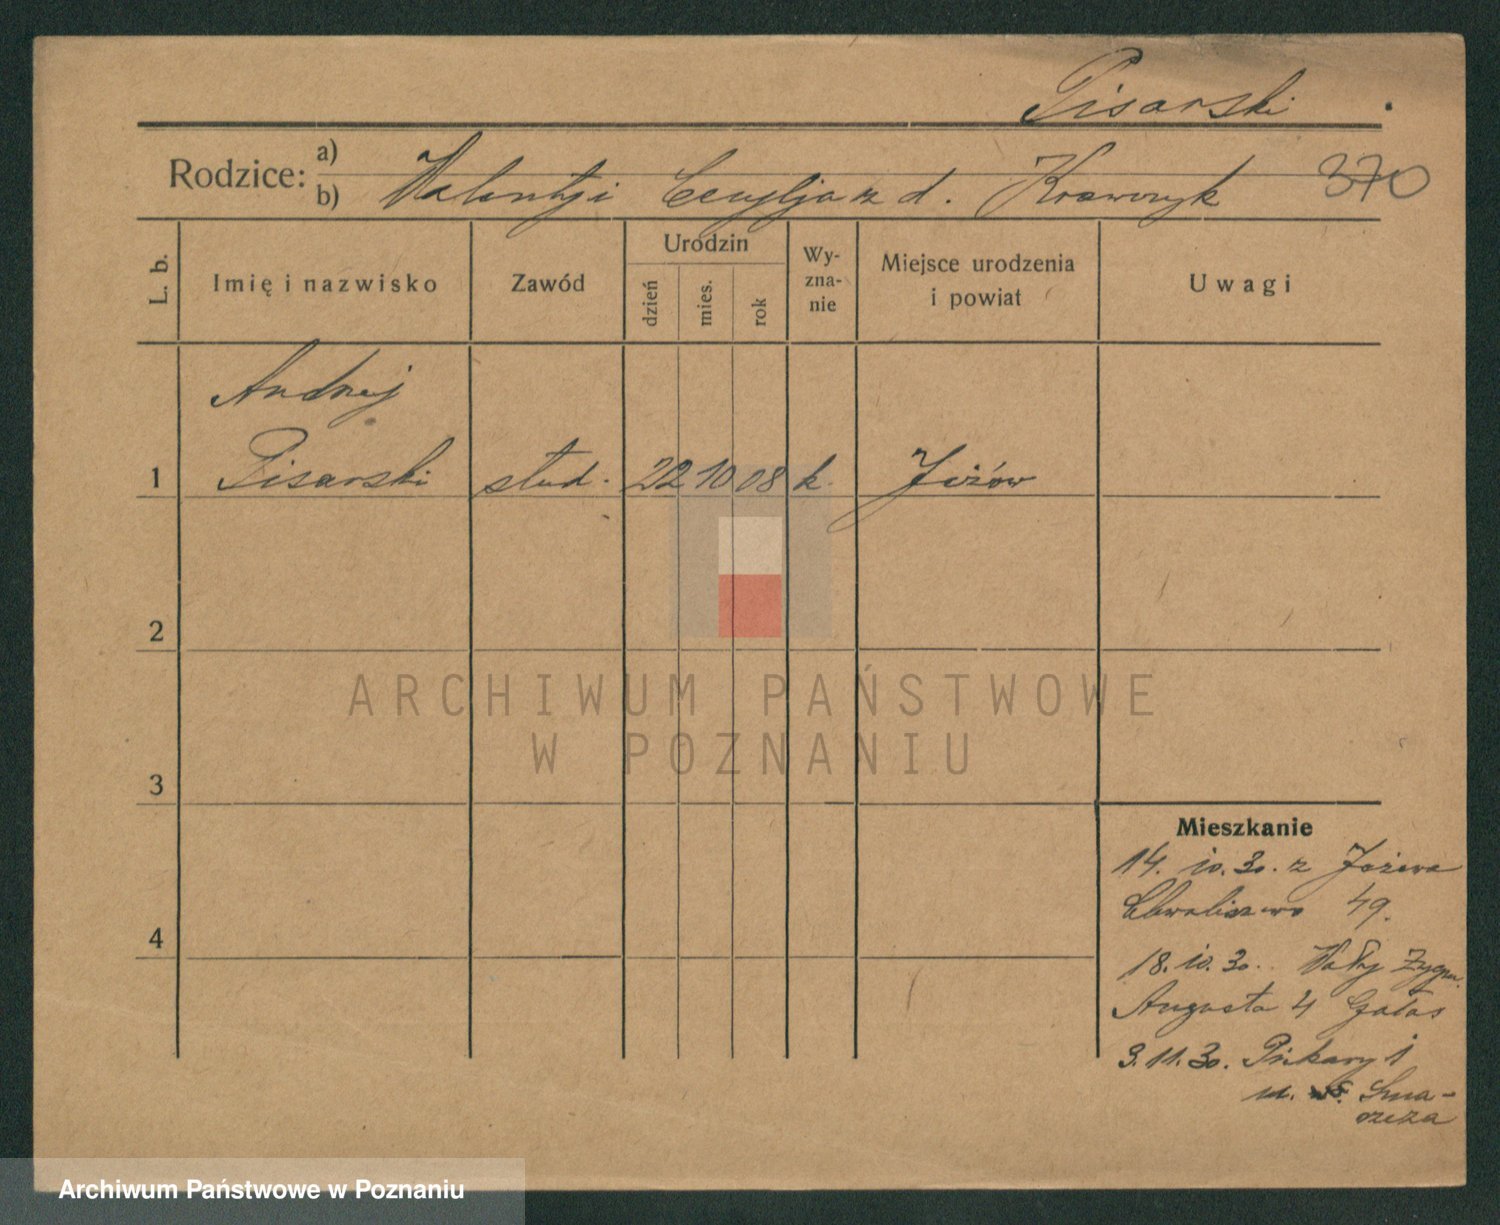 Pisarski
Rodzice: a)
b) Walenty i Cecylja z d. Krawczyk 370
L. b.
Imię i nazwisko
Zawód
Urodzin
dzień
mies.
rok
Wy-
zna-
nie
Miejsce urodzenia
i powiat
Uwagi
Andrzej
1 Pisarski stud. 22 10 08 k. Jeżów
2
3
4
Mieszkanie
14. 10. 30. z Jeżowa
Chwaliszewo 49.
18. 10. 30. Wały Zygm.
Augusta 4 Gałas
3. 11. 30. Piekary 1
m. Sma-
rzcza
ARCHIWUM PAŃSTWOWE
W POZNANIU
Archiwum Państwowe w Poznaniu